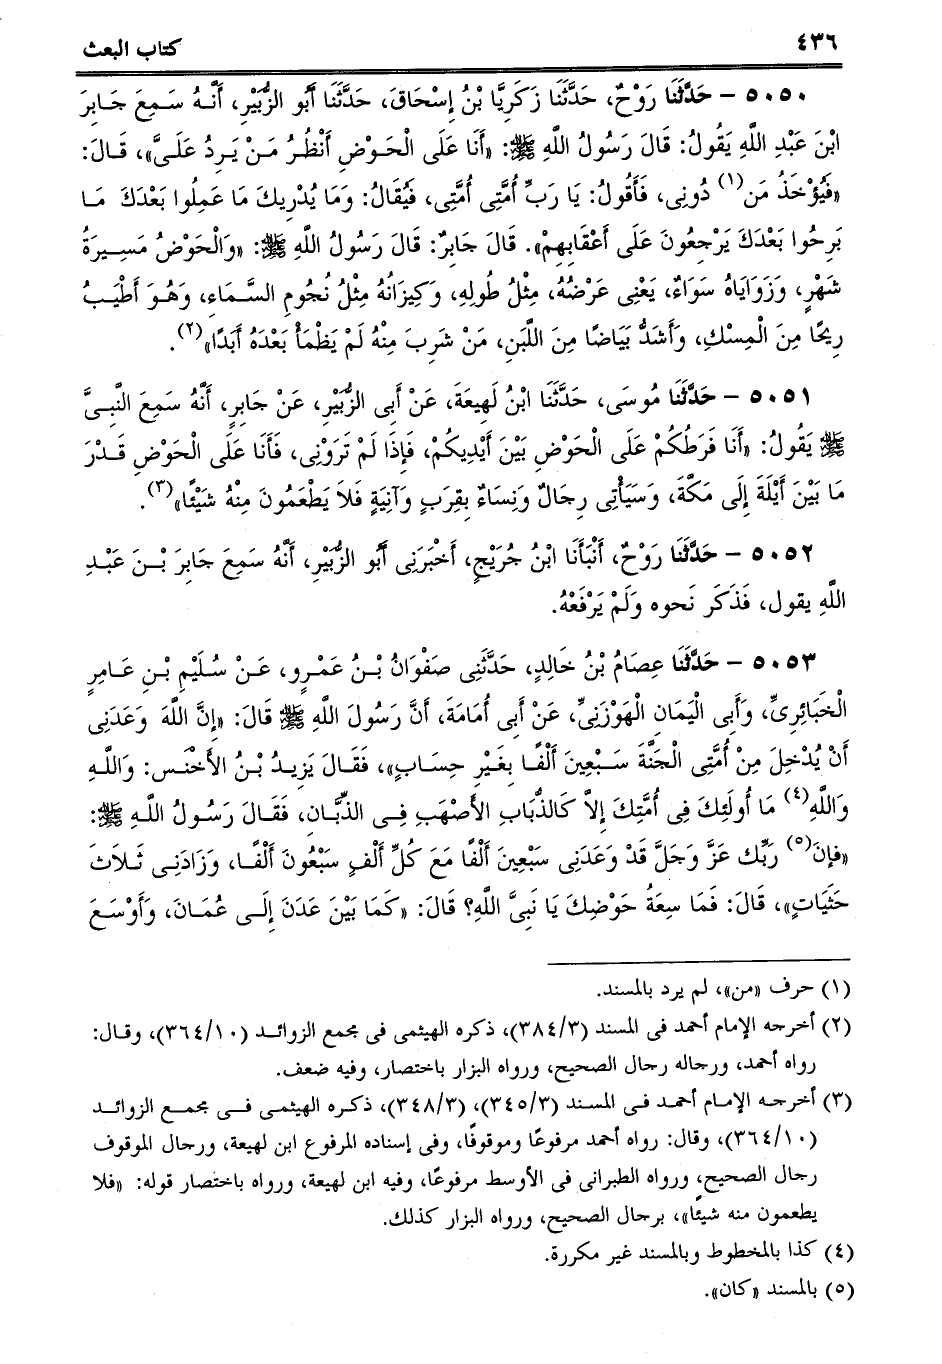 ٤٣٦ كتاب البعث
٥٠٥٠ – حَدَّثَنَا رَوْحٌ، حَدَّثَنَا زَكَرِيَّا بْنُ إِسْحَاقَ، حَدَّثَنَا أَبُو الزُّبَيْرِ، أَنَّهُ سَمِعَ جَابِرَ
ابْنَ عَبْدِ اللَّهِ يَقُولُ: قَالَ رَسُولُ اللَّهِ ﷺ: «أَنَا عَلَى الْحَوْضِ أَنْظُرُ مَنْ يَرِدُ عَلَىَّ»، قَالَ:
«فَيُؤْخَذُ مَن(١) دُونِى، فَأَقُولُ: يَا رَبِّ أُمَّتِى أُمَّتِى، فَيُقَالُ: وَمَا يُدْرِيكَ مَا عَمِلُوا بَعْدَكَ مَا
بَرِحُوا بَعْدَكَ يَرْجِعُونَ عَلَى أَعْقَابِهِمْ». قَالَ جَابِرٌ: قَالَ رَسُولُ اللَّهِ ﷺ: «وَالْحَوْضُ مَسِيرَةُ
شَهْرٍ، وَزَوَايَاهُ سَوَاءٌ، يَعْنِى عَرْضُهُ، مِثْلُ طُولِهِ، وَكِيزَانُهُ مِثْلُ نُجُومِ السَّمَاءِ، وَهُوَ أَطْيَبُ
رِيحًا مِنَ الْمِسْكِ، وَأَشَدُّ بَيَاضًا مِنَ اللَّبَنِ، مَنْ شَرِبَ مِنْهُ لَمْ يَظْمَأْ بَعْدَهُ أَبَدًا»(٢).
٥٠٥١ – حَدَّثَنَا مُوسَى، حَدَّثَنَا ابْنُ لَهِيعَةَ، عَنْ أَبِى الزُّبَيْرِ، عَنْ جَابِرٍ، أَنَّهُ سَمِعَ النَّبِىَّ
ﷺ يَقُولُ: «أَنَا فَرَطُكُمْ عَلَى الْحَوْضِ بَيْنَ أَيْدِيكُمْ، فَإِذَا لَمْ تَرَوْنِى، فَأَنَا عَلَى الْحَوْضِ قَدْرَ
مَا بَيْنَ أَيْلَةَ إِلَى مَكَّةَ، وَسَيَأْتِى رِجَالٌ وَنِسَاءٌ بِقِرَبٍ وَآنِيَةٍ فَلاَ يَطْعَمُونَ مِنْهُ شَيْئًا»(٣).
٥٠٥٢ – حَدَّثَنَا رَوْحٌ، أَنْبَأَنَا ابْنُ جُرَيْجٍ، أَخْبَرَنِى أَبُو الزُّبَيْرِ، أَنَّهُ سَمِعَ جَابِرَ بْنَ عَبْدِ
اللَّهِ يقول، فَذَكَر نَحوه وَلَمْ يَرْفَعْهُ.
٥٠٥٣ – حَدَّثَنَا عِصَامُ بْنُ خَالِدٍ، حَدَّثَنِى صَفْوَانُ بْنُ عَمْرٍو، عَنْ سُلَيْمِ بْنِ عَامِرٍ
الْخَبَائِرِىِّ، وَأَبِى الْيَمَانِ الْهَوْزَنِىِّ، عَنْ أَبِى أُمَامَةَ، أَنَّ رَسُولَ اللَّهِ ﷺ قَالَ: «إِنَّ اللَّهَ وَعَدَنِى
أَنْ يُدْخِلَ مِنْ أُمَّتِى الْجَنَّةَ سَبْعِينَ أَلْفًا بِغَيْرِ حِسَابٍ»، فَقَالَ يَزِيدُ بْنُ الأَخْنَسِ: وَاللَّهِ
وَاللَّهِ(٤) مَا أُولَئِكَ فِى أُمَّتِكَ إِلاَّ كَالذُّبَابِ الأَصْهَبِ فِى الذِّبَّانِ، فَقَالَ رَسُولُ اللَّهِ ﷺ:
«فإنَ(٥) رَبِّك عَزَّ وَجَلَّ قَدْ وَعَدَنِى سَبْعِينَ أَلْفًا مَعَ كُلِّ أَلْفٍ سَبْعُونَ أَلْفًا، وَزَادَنِى ثَلاَثَ
حَثَيَاتٍ»، قَالَ: فَمَا سِعَةُ حَوْضِكَ يَا نَبِىَّ اللَّهِ؟ قَالَ: «كَمَا بَيْنَ عَدَنَ إِلَى عُمَانَ، وَأَوْسَعَ
(١) حرف «من»، لم يرد بالمسند.
(٢) أخرجه الإمام أحمد فى المسند (٣/٣٨٤)، ذكره الهيثمى فى مجمع الزوائد (١٠/٣٦٤)، وقال:
رواه أحمد، ورجاله رجال الصحيح، ورواه البزار باختصار، وفيه ضعف.
(٣) أخرجه الإمام أحمد فى المسند (٣/٣٤٥)، (٣/٣٤٨)، ذكره الهيثمى فى مجمع الزوائد
(١٠/٣٦٤)، وقال: رواه أحمد مرفوعًا وموقوفًا، وفى إسناده المرفوع ابن لهيعة، ورجال الموقوف
رجال الصحيح، ورواه الطبرانى فى الأوسط مرفوعًا، وفيه ابن لهيعة، ورواه باختصار قوله: «فلا
يطعمون منه شيئًا»، برجال الصحيح، ورواه البزار كذلك.
(٤) كذا بالمخطوط وبالمسند غير مكررة.
(٥) بالمسند «كان».